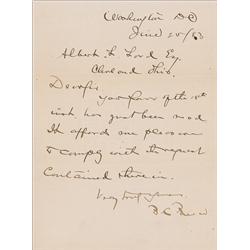 Washington DC
June 25/83
Albert F. Ford Esq.
Cleveland Ohio.
Dear Sir
your favor of the
inst. has just been read
It affords me pleasure
to comply with the request
contained therein.
Very truly yours
B.